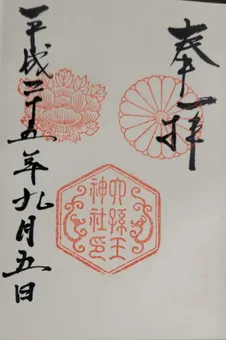 奉拝
六孫王
神社印
平成二十五年九月五日